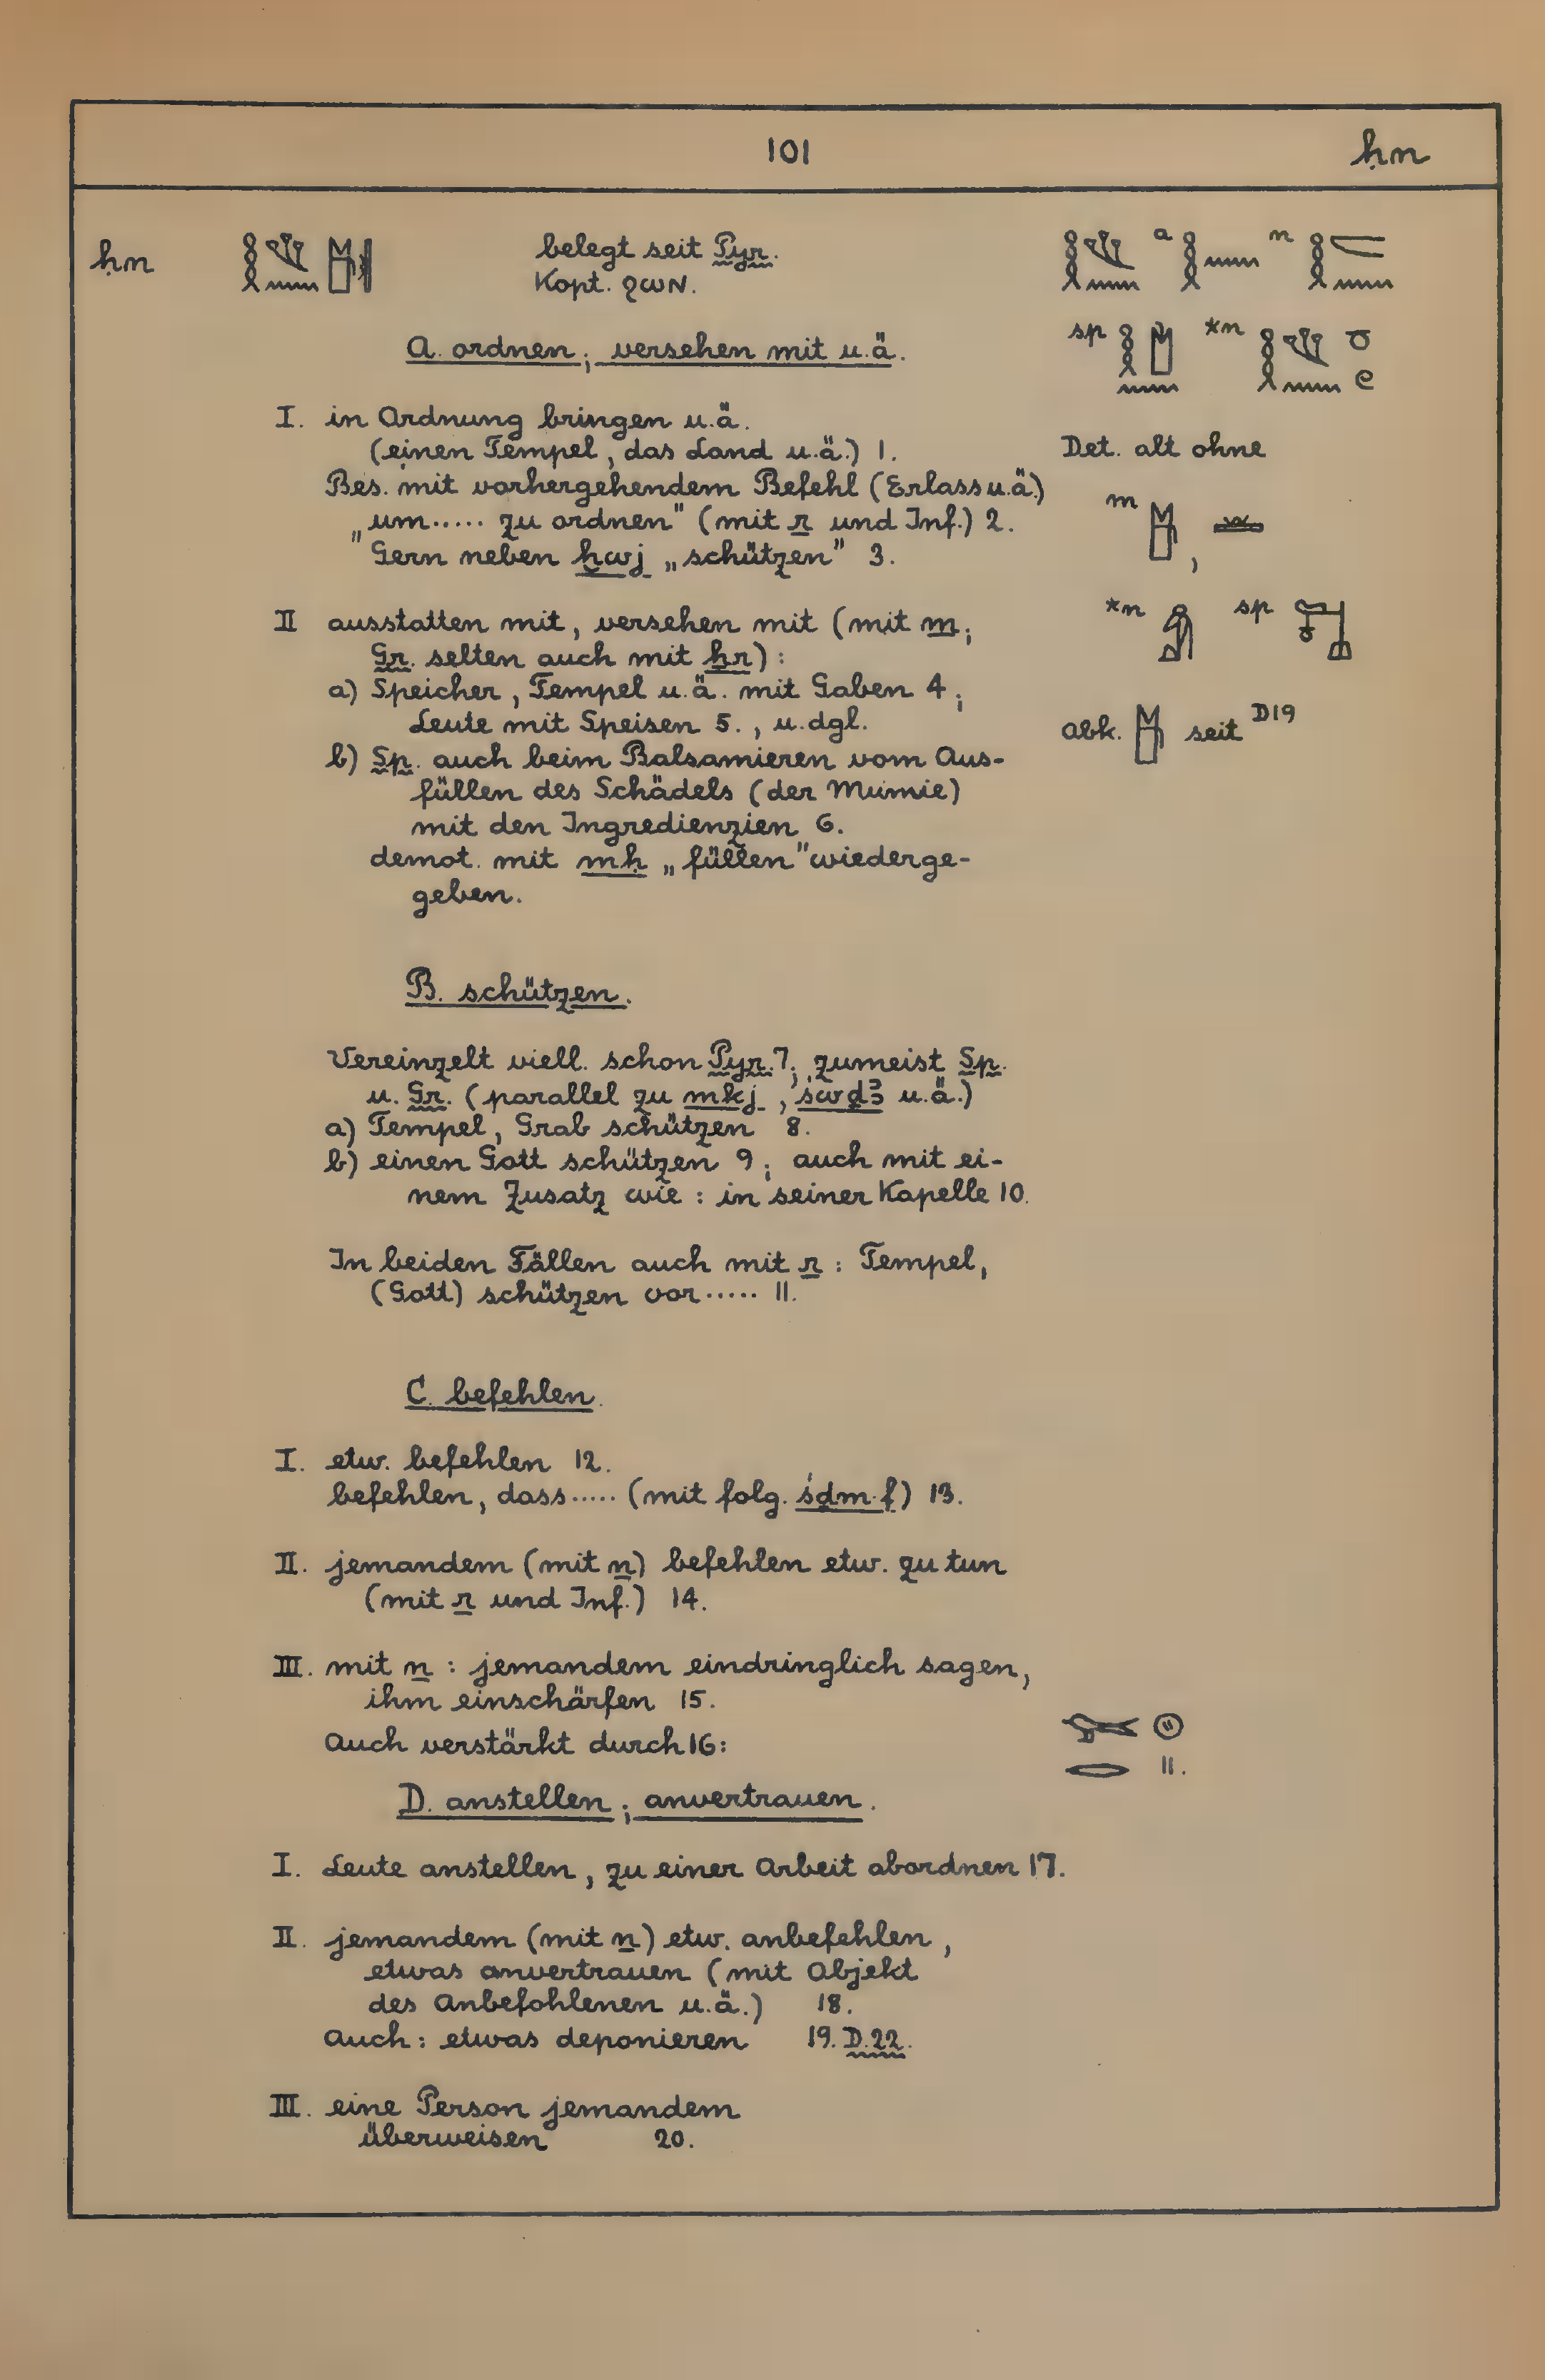 101 ḥn
ḥn belegt seit Pyr.
Kopt. ϩⲱⲛ.
a n
sp *n
A. ordnen; versehen mit u.ä.
I. in Ordnung bringen u.ä.
(einen Tempel, das Land u.ä.) 1.
Bes. mit vorhergehendem Befehl (Erlass u.ä.)
„um..... zu ordnen" (mit r und Inf.) 2.
Gern neben ḫwj „schützen" 3.
Det. alt ohne
m ,
*n sp
Abk. seit D19
II ausstatten mit, versehen mit (mit m;
Gr. selten auch mit ẖr):
a) Speicher, Tempel u.ä. mit Gaben 4;
Leute mit Speisen 5., u.dgl.
b) Sp. auch beim Balsamieren vom Aus-
füllen des Schädels (der Mumie)
mit den Ingredienzien 6.
demot. mit mḥ „füllen" wiederge-
geben.
B. schützen.
Vereinzelt viell. schon Pyr. 7; zumeist Sp.
u. Gr. (parallel zu mkj, śwḏꜣ u.ä.)
a) Tempel, Grab schützen 8.
b) einen Gott schützen 9; auch mit ei-
nem Zusatz wie: in seiner Kapelle 10.
In beiden Fällen auch mit r: Tempel,
(Gott) schützen vor..... 11.
C. befehlen.
I. etw. befehlen 12.
befehlen, dass..... (mit folg. śḏm.f) 13.
II. jemandem (mit n) befehlen etw. zu tun
(mit r und Inf.) 14.
III. mit n: jemandem eindringlich sagen,
ihm einschärfen 15.
Auch verstärkt durch 16:
D. anstellen; anvertrauen.
I. Leute anstellen, zu einer Arbeit abordnen 17.
II. jemandem (mit n) etw. anbefehlen,
etwas anvertrauen (mit Objekt
des Anbefohlenen u.ä.) 18.
Auch: etwas deponieren 19. D.22.
III. eine Person jemandem
überweisen 20.